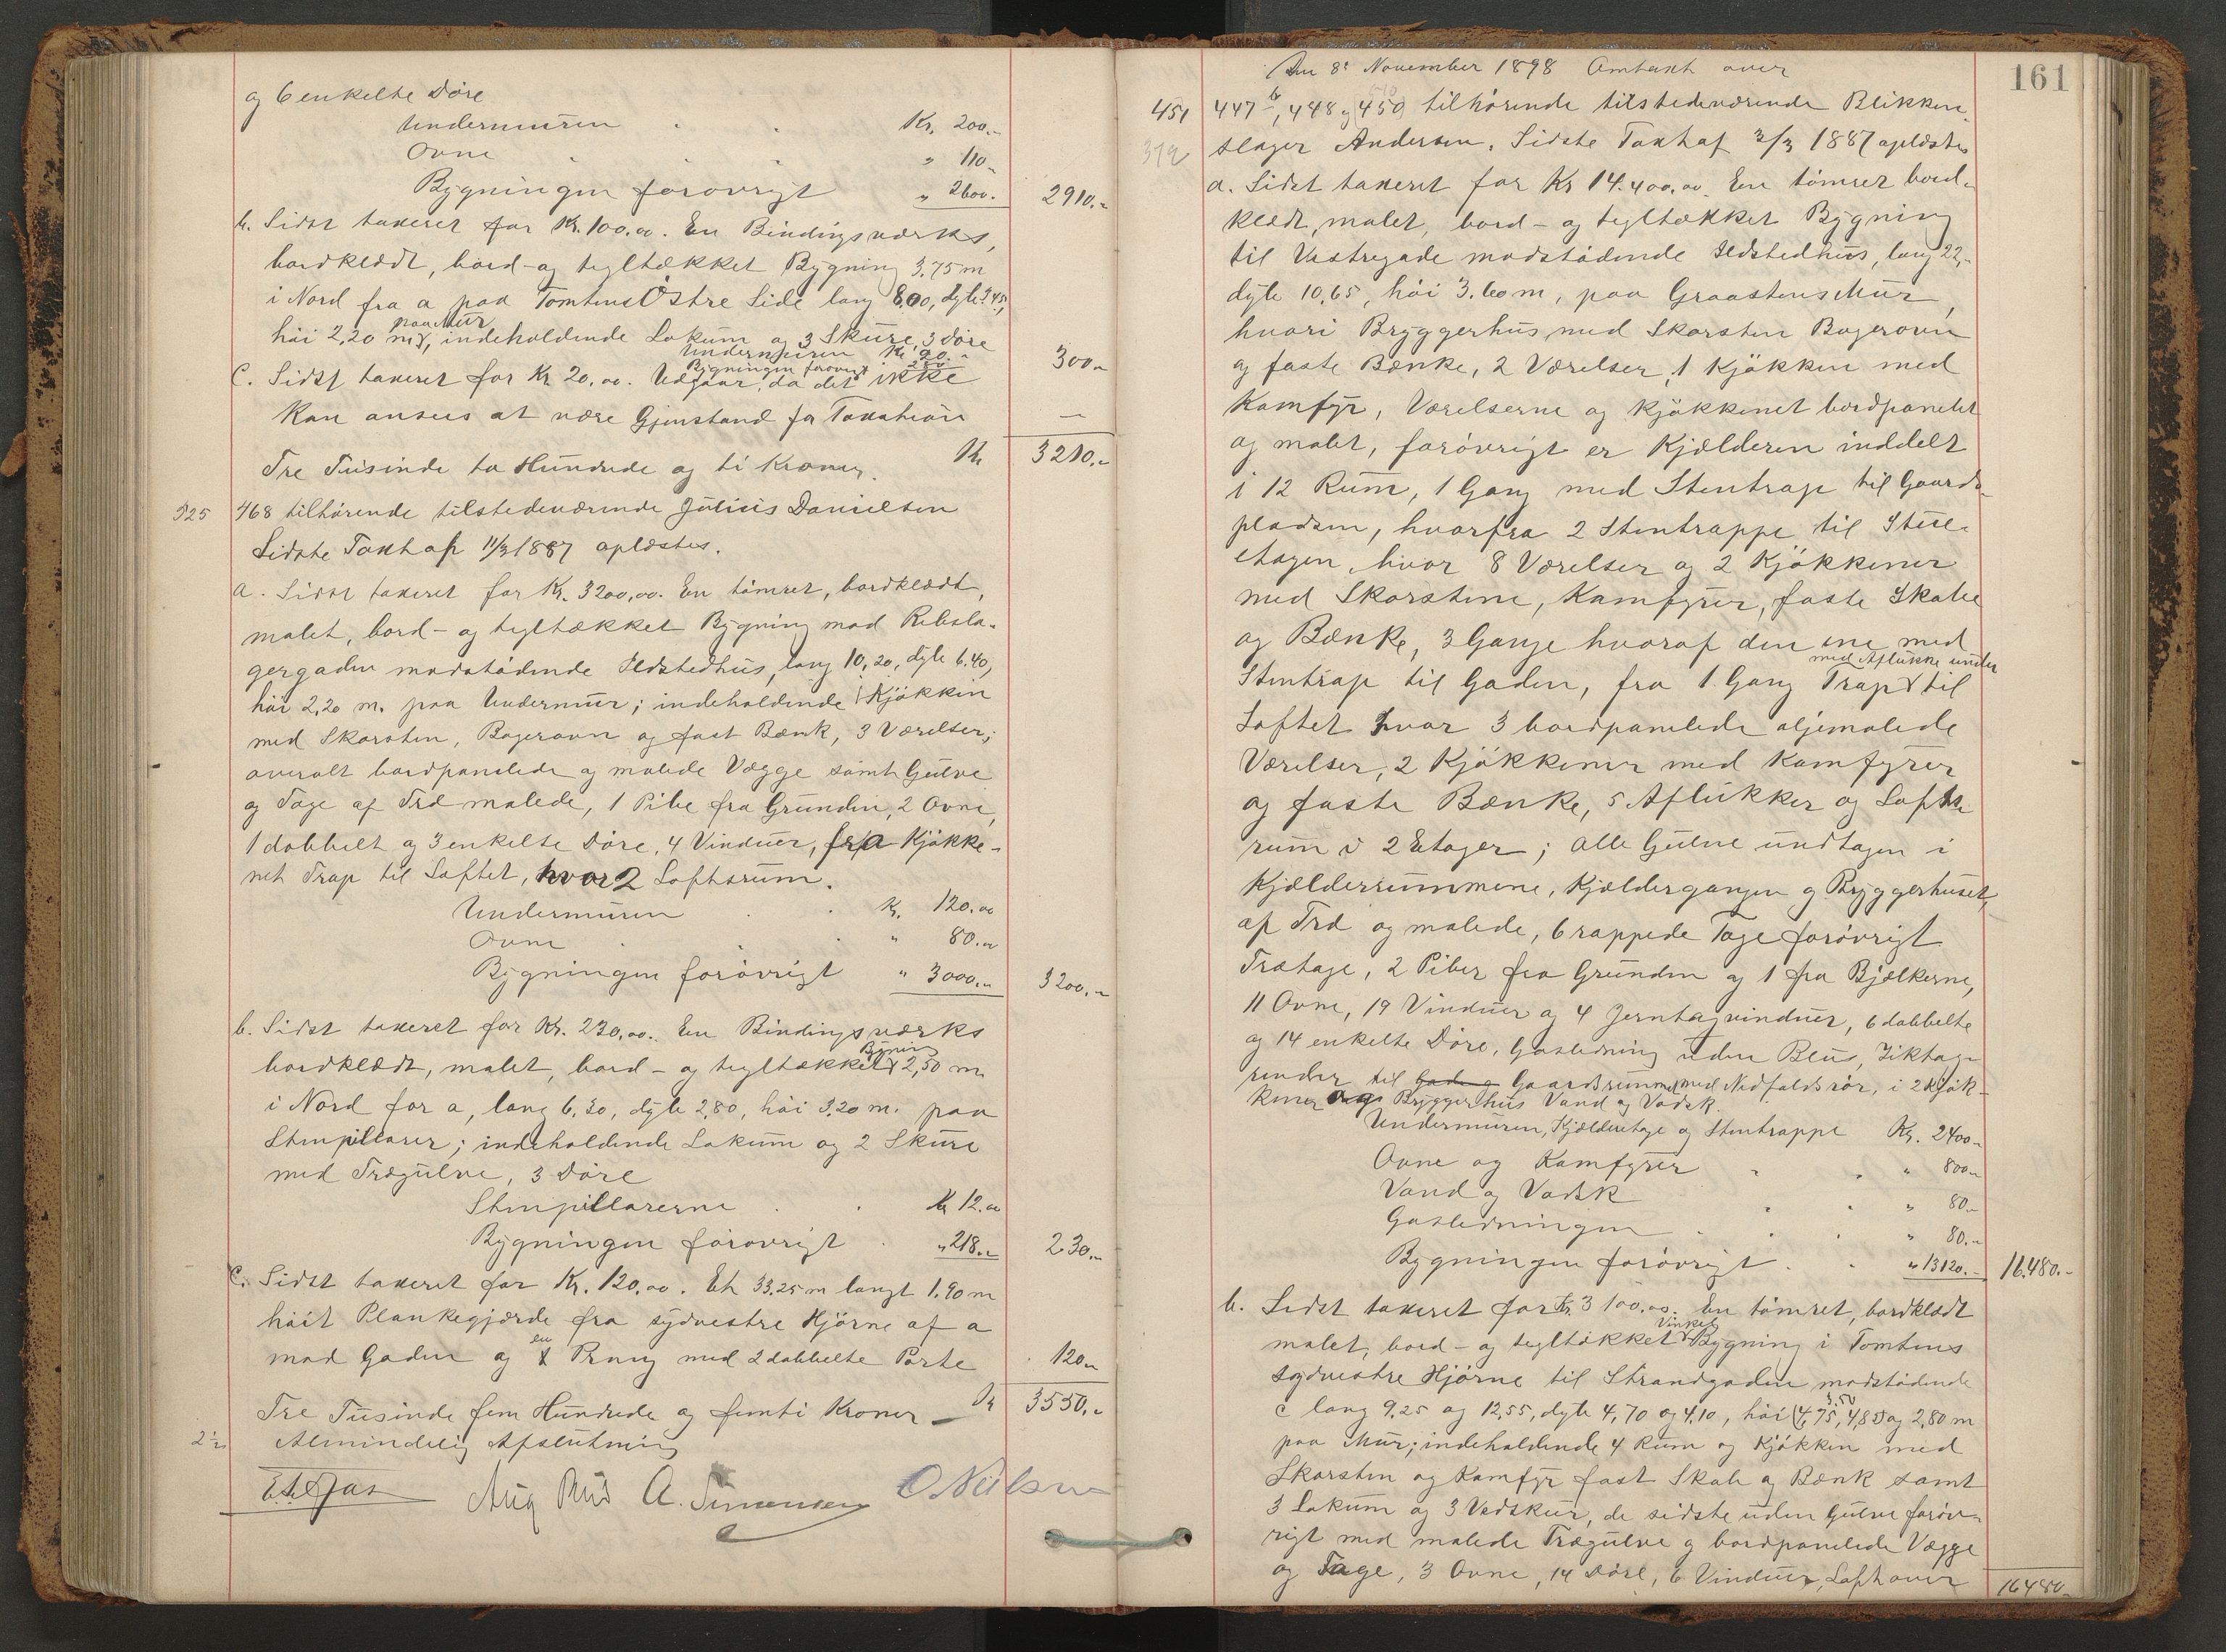 og 6 enkelte Döre
Undermuren Kr. 200.-
Ovne " 110.-
Bygningen forövrigt " 2600.- 2910.-
b. Sidst taxeret for Kr. 100.00. En Bindingsværks,
bordklædt, bord- og tegltækket Bygning 3.75 m
i Nord fra a paa Tomtens Östre Side lang 8.00, dyb 2.45,
höi 2,20 m paa Mur, indeholdende Lokum og 3 Skure, 3 Döre
Undermuren Kr. 20.-
Bygningen forövrigt 280 300.-
C. Sidst taxeret for Kr 20.00. Udgaar, da det ikke
kan ansees at være Gjenstand for Taxation —
Tre Tusinde to Hundrede og ti Kroner. Kr 3210.-
325 468 tilhörende tilstedeværende Julius Danielsen
Sidste Taxt af 11/3 1887 oplæstes.
a. Sidst taxeret for Kr. 3200,00. En tömret, bordklædt,
malet, bord- og tegltækket Bygning mod Rebsla-
gergaden modstödende Ildstedhus, lang 10,20, dyb 6.40,
höi 2,20 m. paa Undermur; indeholdende 1 Kjökken
med Skorsten, Bagerovn og fast Bænk, 3 Værelser;
overalt bordpanelede og malede Vægge samt Gulve
og Tage af Træ malede, 1 Pibe fra Grunden, 2 Ovne,
1 dobbelt og 3 enkelte Döre, 4 Vinduer, fra Kjökke-
net Trap til Loftet, hvor 2 Loftsrum.
Undermuren Kr. 120.00
Ovne " 80.00
Bygningen forövrigt " 3000.- 3200.-
b. Sidst taxeret for Kr. 230,00. En Bindingsværks
bordklædt, malet, bord- og tegltækket Bygning 2,50 m
i Nord for a, lang 6.30, dyb 2,80, höi 3,20 m. paa
Stenpillarer; indeholdende Lokum og 2 Skure
med Trægulve, 3 Döre
Stenpillarerne Kr 12.00
Bygningen forövrigt " 218.- 230.-
C. Sidst taxeret for Kr. 120.00. Et 33.25 m langt 1.90 m
höit Plankegjærde fra sydvestre Hjörne af a
mod Gaden og en med 2 dobbelte Porte 120.-
Tre Tusinde fem Hundrede og femti Kroner — Kr 3550.-
Almindelig Afslutning
Aug Ruud A. Simonsen O Nilsen
161
Den 8de November 1898 Omtaxt over
451 447 b, 448 og 450 tilhörende tilstedeværende Blikken-
372 slager Andersen. Sidste Taxt af 3/3 1887 oplæstes
a. Sidst taxeret for Kr 14.400,00. En tömret bord-
klædt, malet, bord- og tegltækket Bygning
til Vestregade modstödende Ildstedhus, lang 22,-
dyb 10,65, höi 3.60 m, paa Graastensmur,
hvori Bryggerhus med Skorsten Bagerovn
og faste Bænke, 2 Værelser, 1 Kjökken med
Komfyr, Værelserne og Kjökkenet bordpanelet
og malet, forövrigt er Kjælderen inddelt
i 12 Rum, 1 Gang med Stentrap til Gaards-
pladsen, hvorfra 2 Stentrappe til Stue-
etagen, hvor 8 Værelser og 2 Kjökkener
med Skorstene, Komfyrer, faste Skabe
og Bænke, 3 Gange hvoraf den ene med
Stentrap til Gaden, fra 1 Gang Trap med Aflukke under til
Loftet hvor 3 bordpanelede oljemalede
Værelser, 2 Kjökkener med Komfyrer
og faste Bænke, 5 Aflukker og Lofts
rum i 2 Etager; alle Gulve undtagen i
Kjælderrummene, Kjældergangen og Bryggerhuset,
af Træ og malede, 6 rappede Tage forövrigt
Trætage, 2 Piber fra Grunden og 1 fra Bjælkerne,
11 Ovne, 19 Vinduer og 4 Jerntagvinduer, 6 dobbelte
og 14 enkelte Döre, Gasledning uden Blus, Ziktag-
render til Gade og Gaardsrummet med Nedfaldsrör, i 2 Kjök-
kener og Bryggerhus Vand og Vadsk.
Undermuren, Kjælderetage og Stentrappe Kr. 2400.-
Ovne og Komfyrer " 800.-
Vand og Vadsk " 80.-
Gasledningen " 80.-
Bygningen forövrigt " 13120.- 16.480.-
b. Sidst taxeret for Kr. 3100.00. En tömret, bordklædt
malet, bord- og tegltækket Vinkel Bygning i Tomtens
sydvestre Hjörne til Strandgaden modstödende
c lang 9.25 og 12,55, dyb 4,70 og 4,10, höi (4,75, 4,85) 3.50 og 2,80 m
paa Mur; indeholdende 4 Rum og Kjökken med
Skorsten og Komfyr fast Skab og Bænk samt
3 Lokum og 3 Vedskur, de sidste uden Gulve foröv-
rigt med malede Trægulve og bordpanelede Vægge
og Tage, 3 Ovne, 14 Döre, 6 Vinduer, Loft over
16480.-